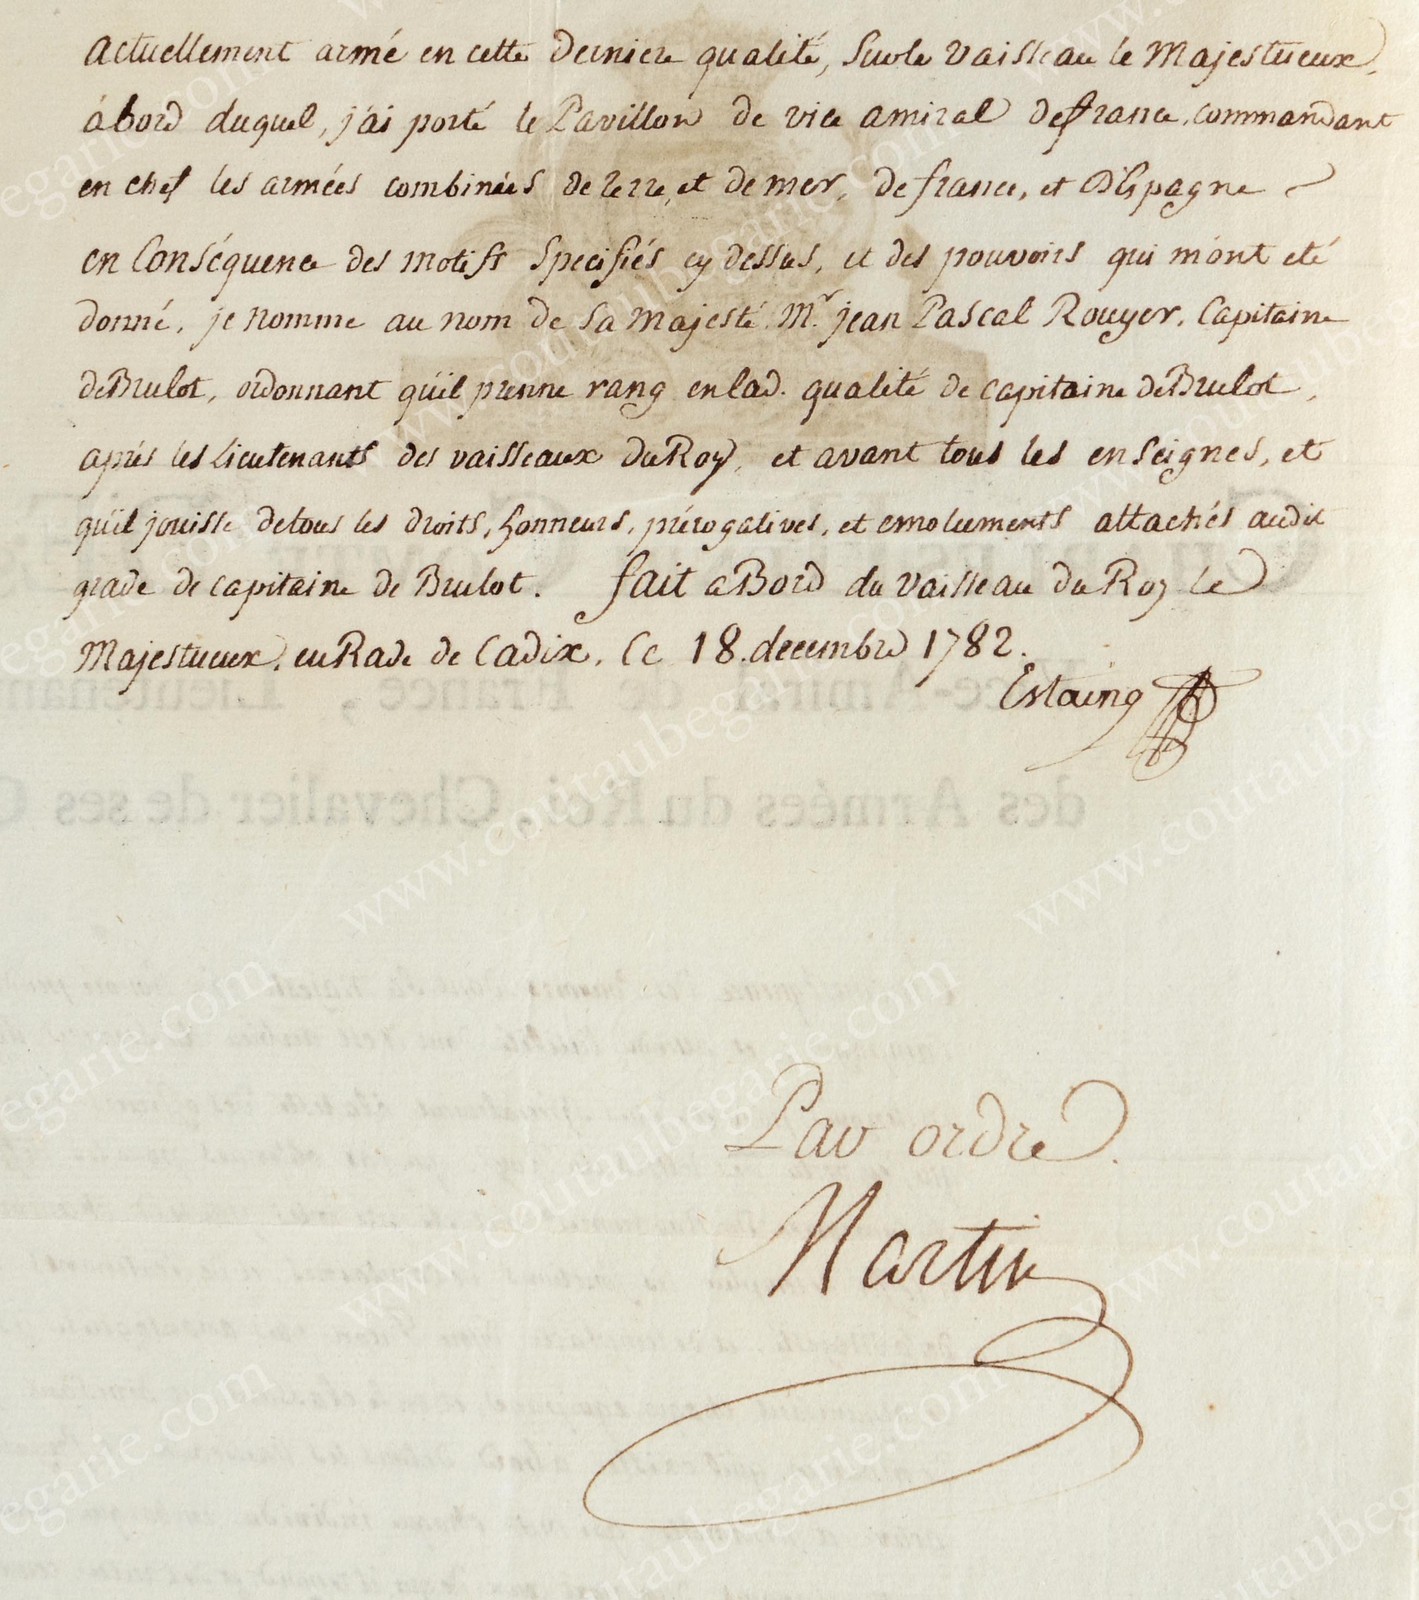 actuellement armé en cette derniere qualité, sur le vaisseau le Majestueux,
à bord duquel, j'ai porté le Pavillon de vice amiral de france, commandant
en chef les armées combinées de terre, et de mer, de france, et d'Espagne
en Conséquence des motifs specifiés cy dessus, et des pouvoirs qui m'ont eté
donné, je nomme au nom de sa majesté M.r jean Pascal Rouyer, Capitaine
de Brulot, ordonnant qu'il prenne rang en lad. qualité de capitaine de Brulot,
après les Lieutenants des vaisseaux du Roy, et avant tous les enseignes, et
qu'il jouisse de tous les droits, honneurs, prérogatives, et emoluments attachés audit
grade de capitaine de Brulot. fait a Bord du vaisseau du Roy le
Majestueux, en Rade de Cadix, Ce 18. decembre 1782.
Estaing
ce-Amiral de France, Lieutenan
des Armées du Roi, Chevalier de ses
Par ordre.
Martin
www.coutaubegarie.com